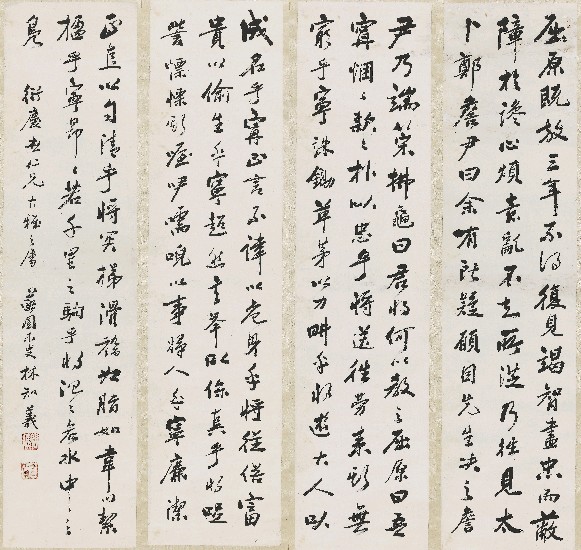 屈原既放三年不得復見竭智盡忠而蔽
障於讒心煩意亂不知所從乃往見太
卜鄭詹尹曰余有所疑願因先生決之詹
尹乃端策拂龜曰君將何以教之屈原曰吾
寧悃々款々朴以忠乎將送往勞來斯無
窮乎寧誅鋤草茅以力耕乎將遊大人以
成名乎寧正言不諱以危身乎將從俗富
貴以偷生乎寧超然高舉以保真乎將哫
訾慄慄斯喔咿嚅唲以事婦人乎寧廉潔
正直以自清乎將突梯滑稽如脂如韋以絜
楹乎寧昂々若千里之駒乎將氾々若水中之
鳧
衍慶老仁兄大雅之屬 林知義